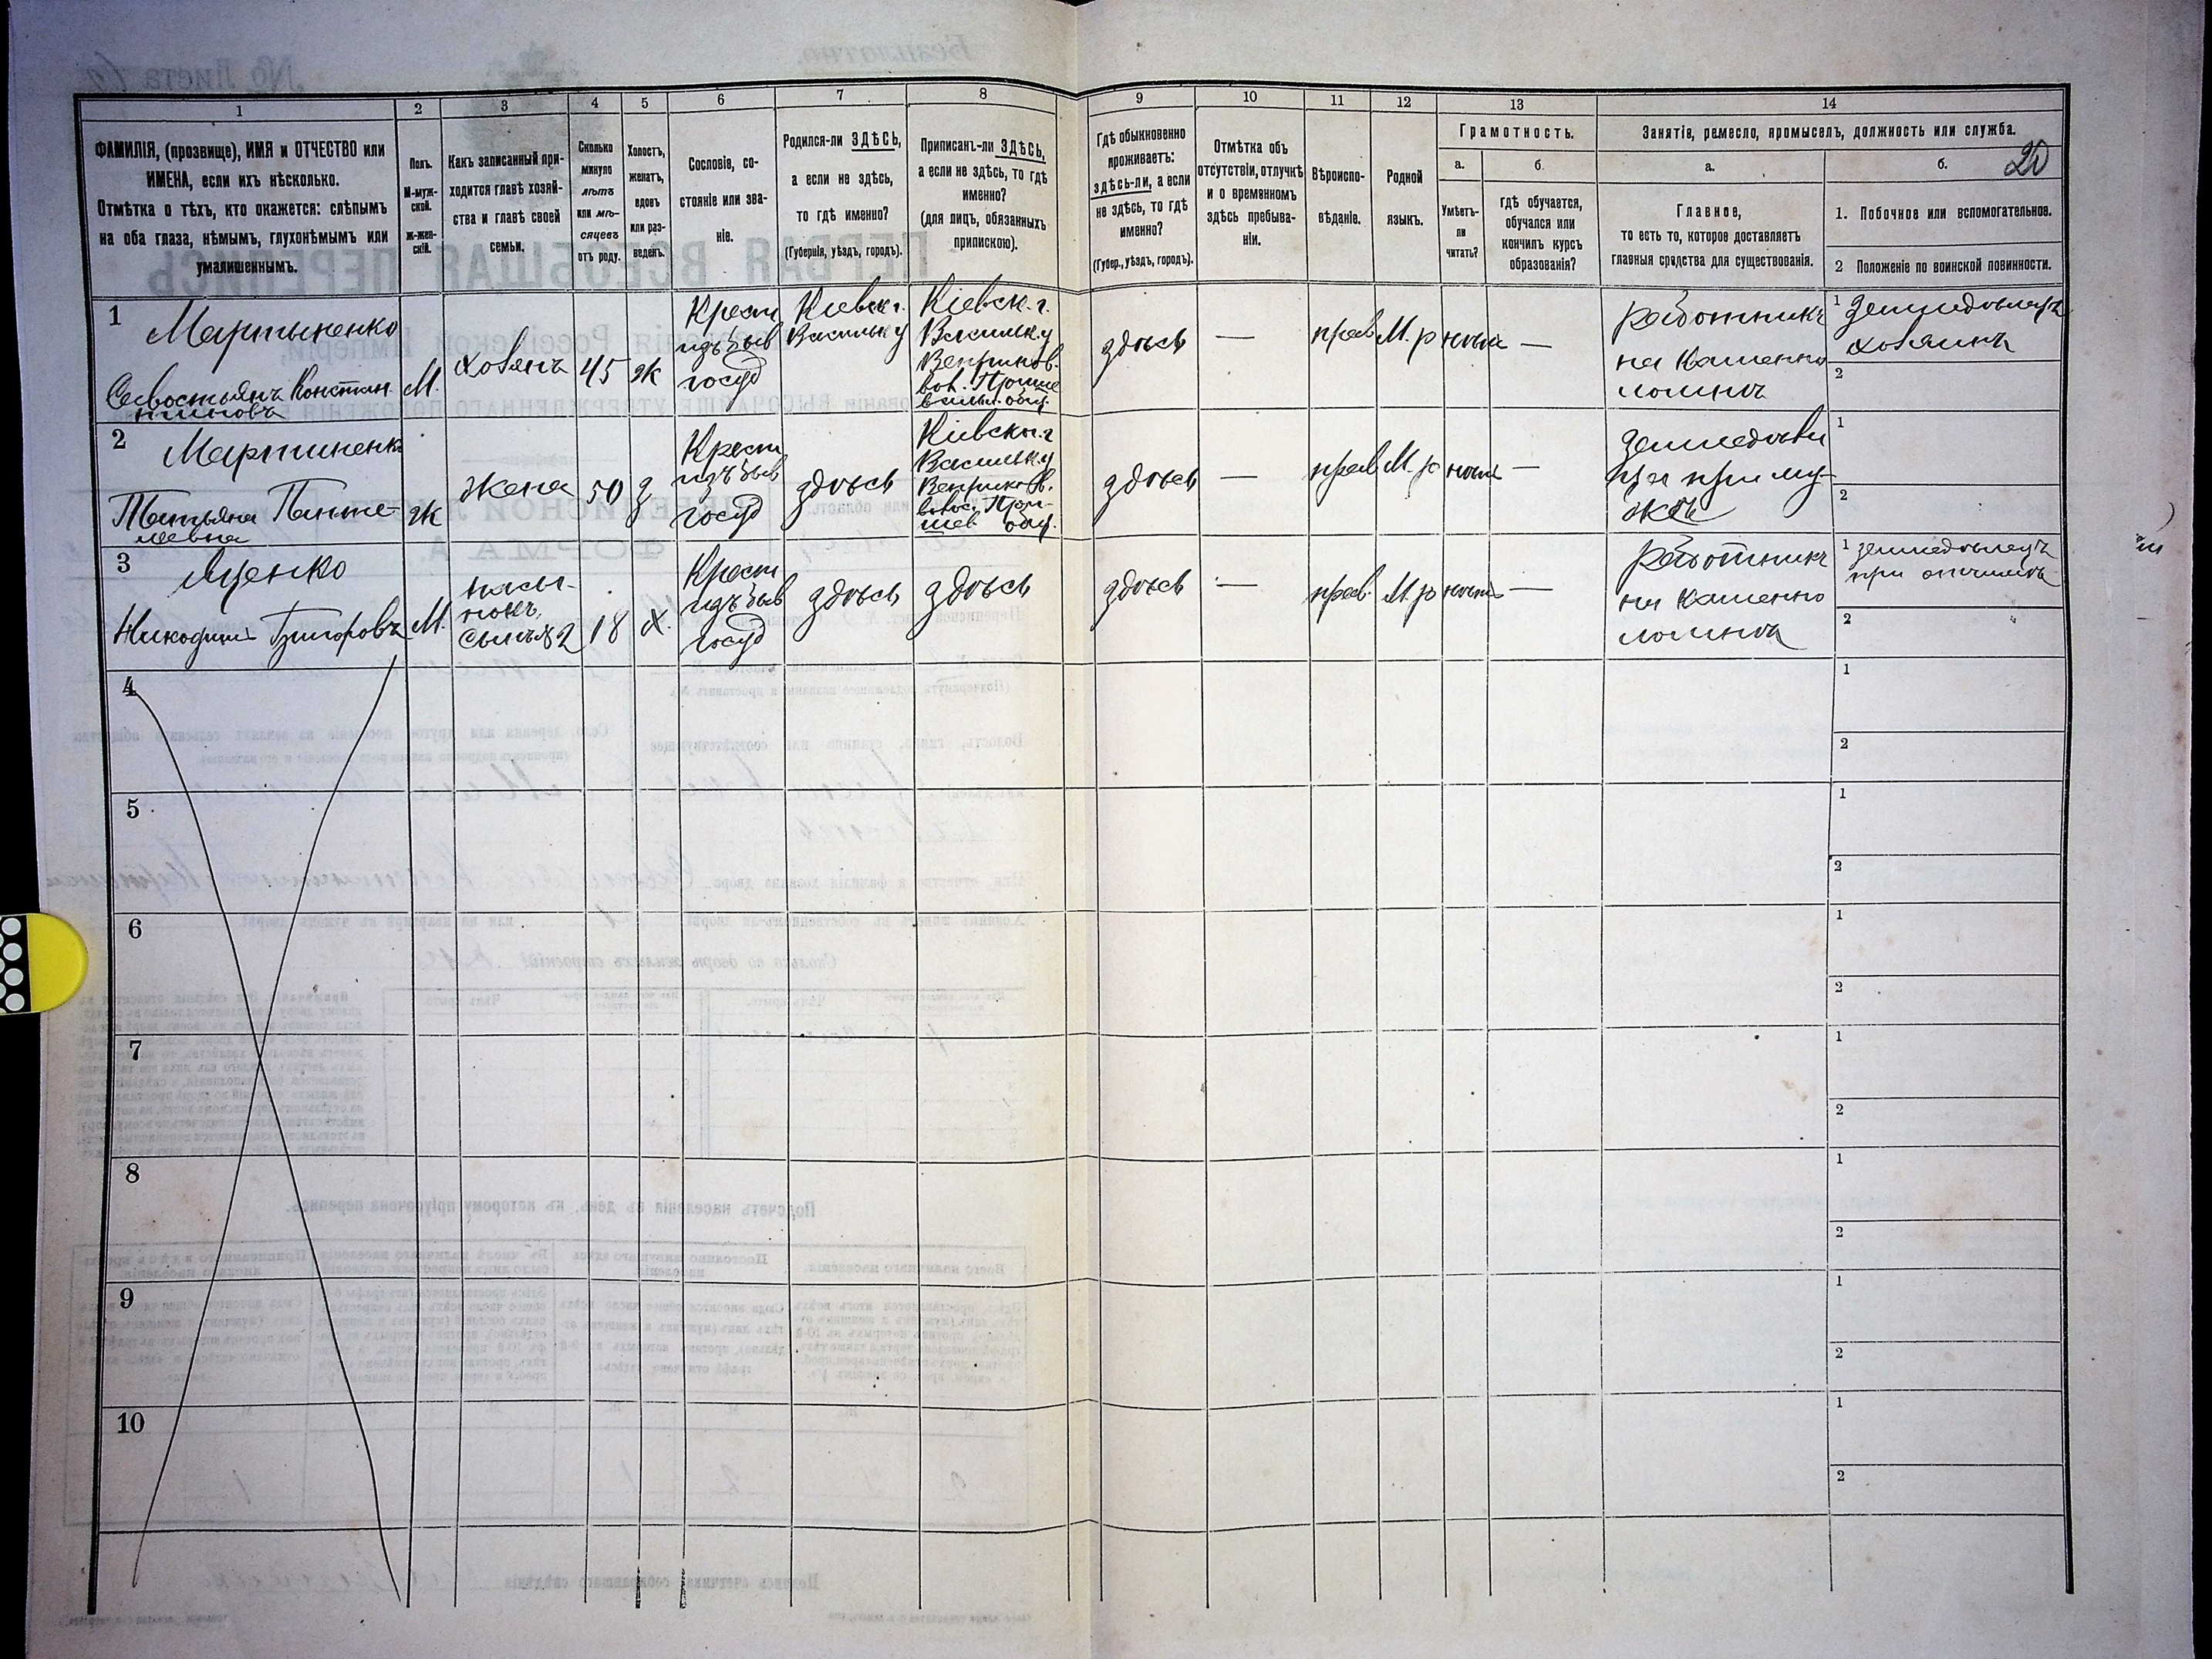 1
2
3
4
5
6
7
8
9
10
11
12
13
14
ФАМИЛІЯ, (прозвище), ИМЯ и ОТЧЕСТВО или
ИМЕНА, если ихъ нѣсколько.
Отмѣтка о тѣхъ, кто окажется: слѣпымъ
на оба глаза, нѣмымъ, глухонѣмымъ или
умалишеннымъ.
Полъ.
М-муж-
ской.
Ж-жен-
скій.
Какъ записанный при-
ходится главѣ хозяй-
ства и главѣ своей
семьи.
Сколько
минуло
лѣтъ
или мѣ-
сяцевъ
отъ роду.
Холостъ,
женатъ,
вдовъ
или раз-
веденъ.
Сословіе, со-
стояніе или зва-
ніе.
Родился-ли ЗДѢСЬ,
а если не здѣсь,
то гдѣ именно?
(Губернія, уѣздъ, городъ).
Приписанъ-ли ЗДѢСЬ,
а если не здѣсь, то гдѣ
именно?
(для лицъ, обязанныхъ
припискою).
Гдѣ обыкновенно
проживаетъ:
здѣсь-ли, а если
не здѣсь, то гдѣ
именно?
(Губер., уѣздъ, городъ).
Отмѣтка объ
отсутствіи, отлучкѣ
и о временномъ
здѣсь пребыва-
ніи.
Вѣроиспо-
вѣданіе.
Родной
языкъ.
Грамотность.
а.
б.
Умѣетъ-
ли
читать?
гдѣ обучается,
обучался или
кончилъ курсъ
образованія?
Занятіе, ремесло, промыселъ, должность или служба.
а.
б.
20
Главное,
то есть то, которое доставляетъ
главныя средства для существованія.
1. Побочное или вспомогательное.
2 Положеніе по воинской повинности.
1
Мартыненко
Севостьянъ Констан-
тиновъ
М.
хозяинъ
45
ж
Крест
изъ быв
госуд
Кіевск г.
Васильк у
Кіевск. г.
Васильк. у
Веприков.
вол.
здѣсь
—
прав
М. р
нѣтъ
—
работникъ
на каменно
ломнѣ
1 земледѣлецъ
хозяинъ
2
2
Мартиненко
Татьяна Панте-
леевна
ж
жена
50
з
Крест
изъ быв
госуд
здѣсь
Кіевск. г
Васильк. у
Веприков.
волос.
здѣсь
—
прав
М. р
нѣтъ
—
земледѣли
ца при му-
жѣ
1
2
3
Яценко
Никодимъ Григоровъ
М.
пасы-
нокъ,
сынъ №2
18
х.
Крест
изъ быв
госуд
здѣсь
здѣсь
здѣсь
—
прав.
М. р
нѣтъ
—
работникъ
на каменно
ломнѣ
1 земледѣлецъ
при отчимѣ
2
4
1
2
5
1
2
6
1
2
7
1
2
8
1
2
9
1
2
10
1
2